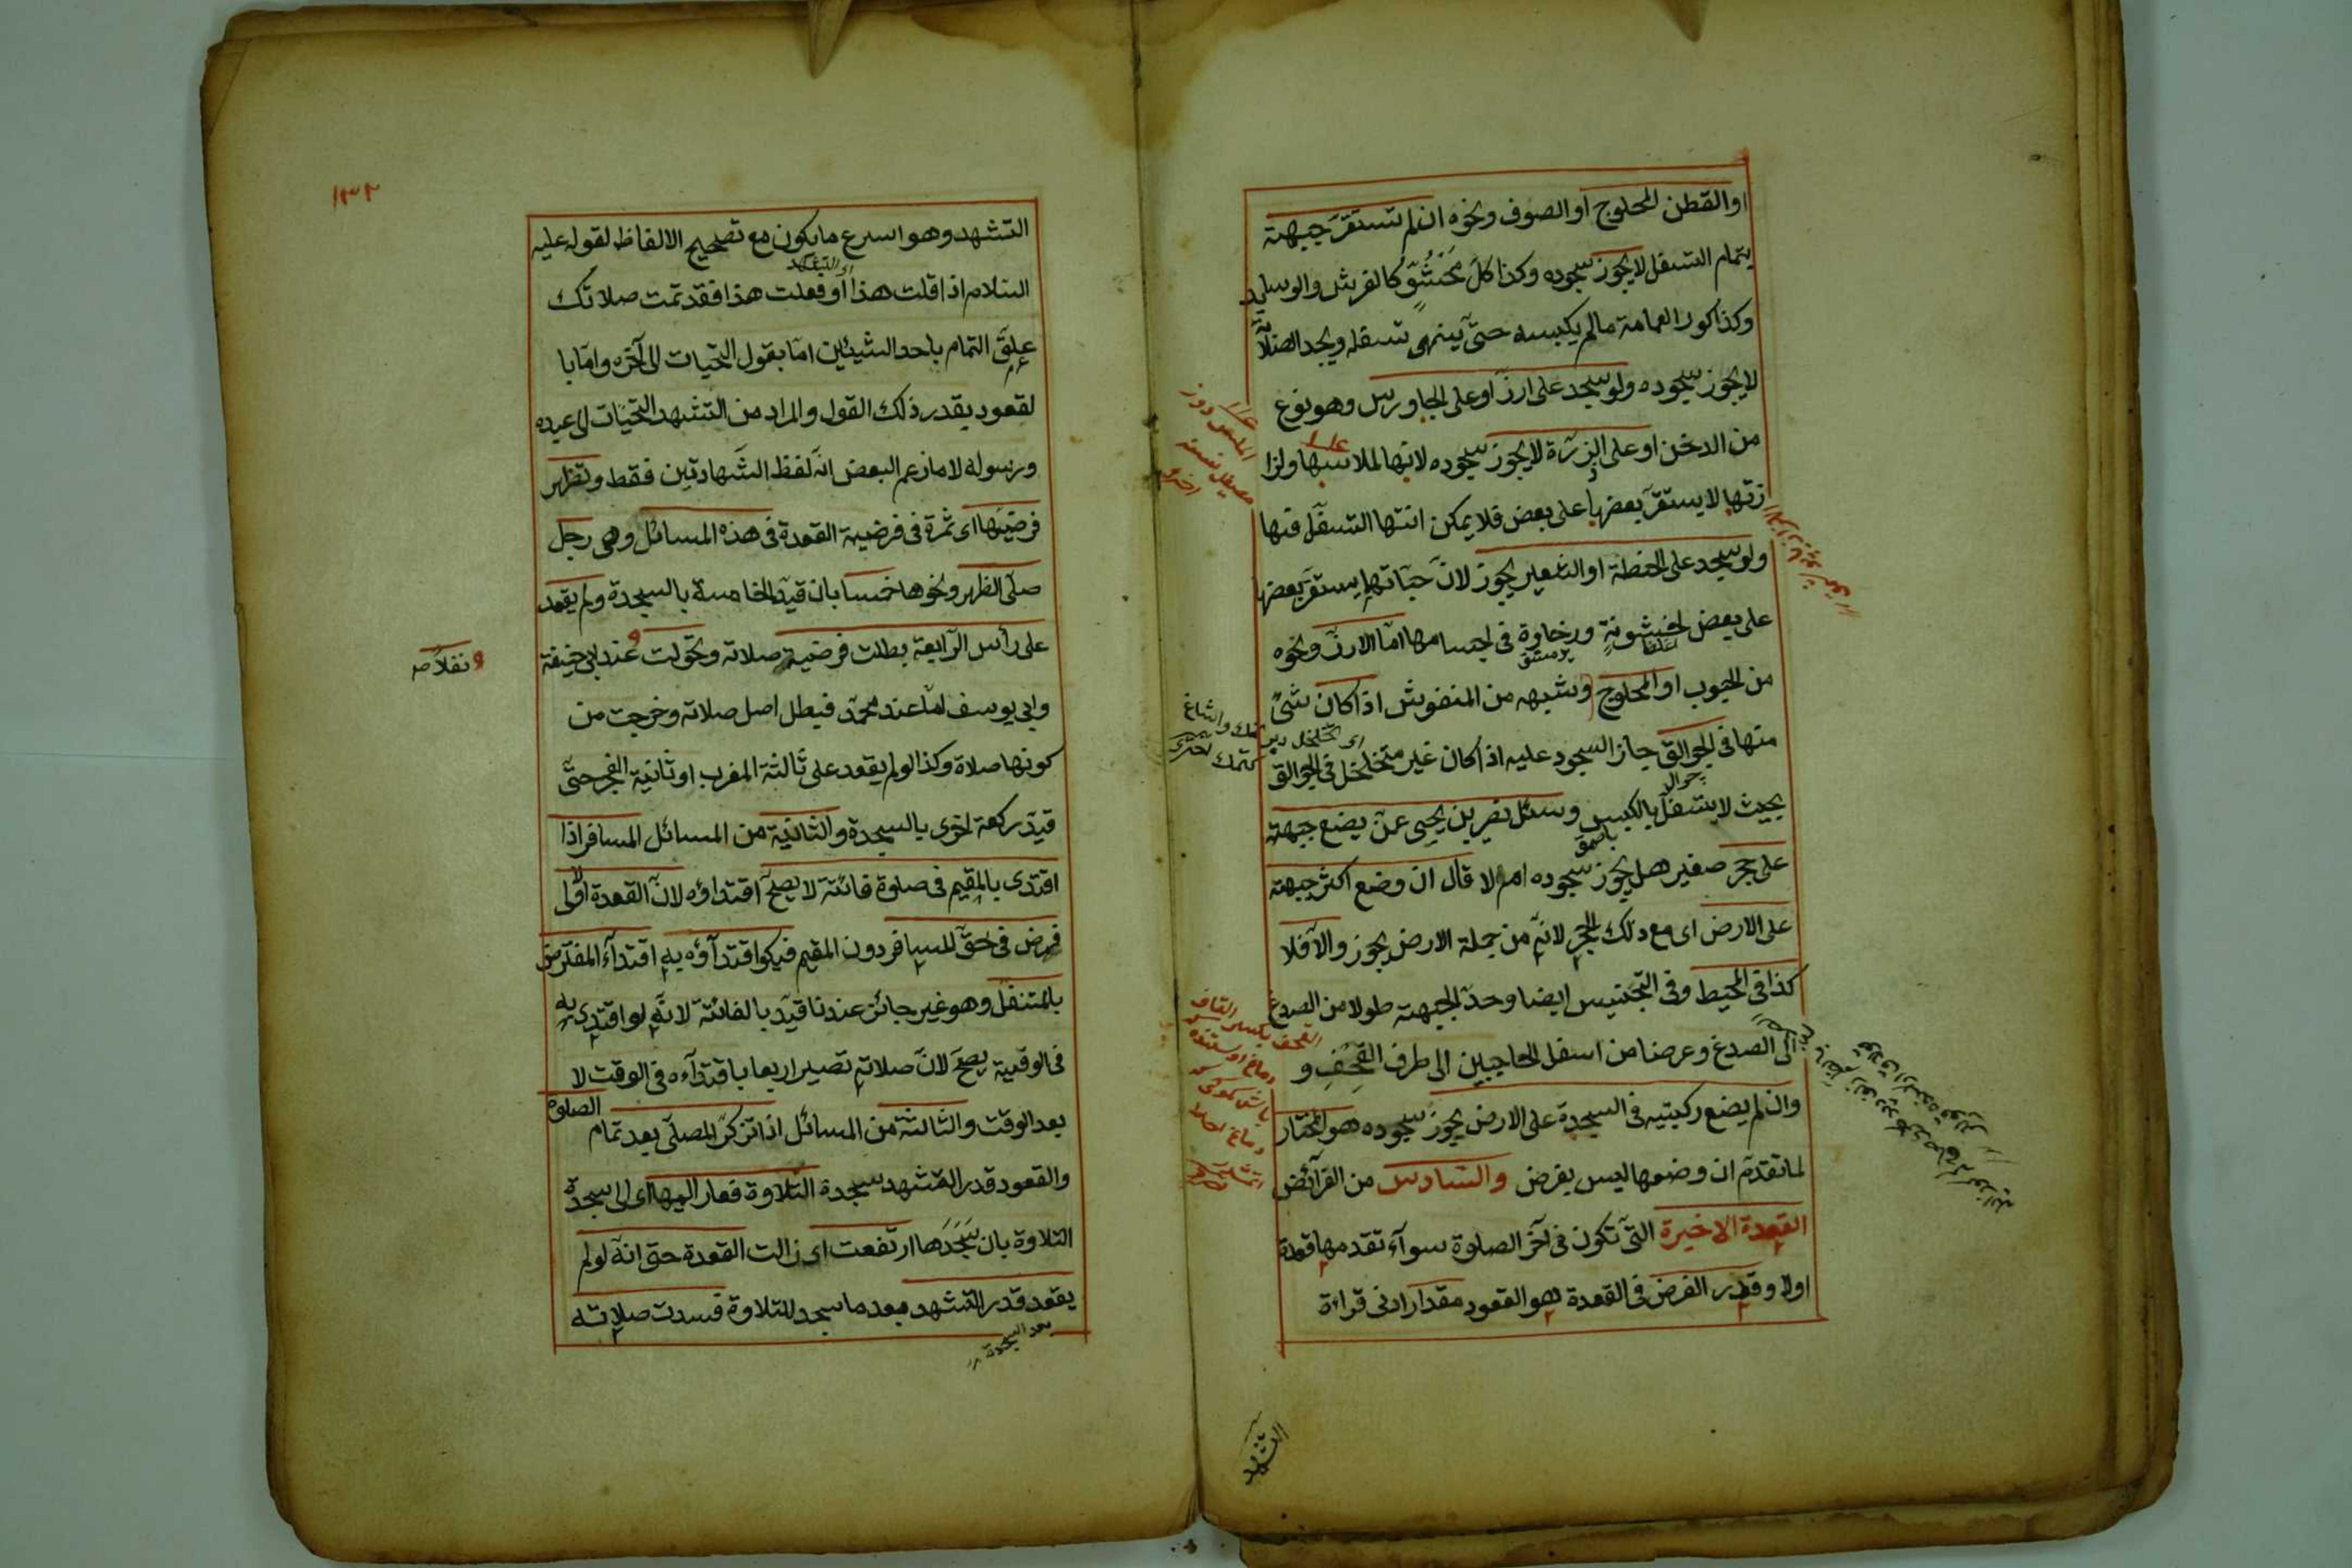 او القطن المحلوج او الصوف ونحوه ان لم تستقر جبهته
بتمام التسفل لا يجوز سجوده وكذا كل محشو كالفرش والوسايد
وكذا كور العمامة ما لم يكبسه حتى ينتهى تسفله ويجد الصلابة
لا يجوز سجوده ولو سجد على ارز او على الجاورس وهو نوع
من الدخن او على الذرة لا يجوز سجوده لانها لملاستها ولزا
زتها لا يستقر بعضها على بعض فلا يمكن انتها التسفل فيها
ولو سجد على الحنطة او الشعير يجوز لان حباتها يستقر بعضها
على بعض لخشونة ورخاوة فى اجسامها اما الارز ونحوه
من الحبوب او المحلوج وشبهه من المنفوش اذا كان شئ
منها فى الجوالق جاز السجود عليه اذا كان غير متخلخل فى الجوالق
بحيث لا يتسفل بالكبس وسئل نصر بن يحيى عمن يضع جبهته
على حجر صغير هل يجوز سجوده ام لا قال ان وضع اكثر جبهته
على الارض اى مع ذلك الحجر لانه من جملة الارض يجوز والا فلا
كذا فى المحيط وفى التجنيس ايضا وحد الجبهة طولا من الصدغ
الى الصدغ وعرضا من اسفل الحاجبين الى طرف القحف و
وان لم يضع ركبتيه فى السجدة على الارض يجوز سجوده هو المختار
لما تقدم ان وضعها ليس بفرض والسادس من الفرآئض
القعدة الاخيرة التى تكون فى آخر الصلوة سوآء تقدمها قعدة
اولا وقدر الفرض فى القعدة هو القعود مقدار ادنى قراءة
التشهد
١٣٢
التشهد وهو اسرع ما يكون مع تصحيح الالفاظ لقوله عليه
السلام اذا قلت هذا او فعلت هذا فقد تمت صلاتك
علق التمام باحد الشيئين اما بقول التحيات الى آخره واما با
لقعود بقدر ذلك القول والمراد من التشهد التحيات الى عبده
ورسوله لا ما زعم البعض انه لفظ الشهادتين فقط وتظهر
فرضيتها اى ثمرة فى فرضية القعدة فى هذه المسائل وهى رجل
صلى الظهر ونحوها خمسا بان قيد الخامسة بالسجدة ولم يقعد
على رأس الرابعة بطلت فرضية صلاته وتحولت عند ابى حنيفة
ونفلا صح
وابى يوسف اما عند محمد فيبطل اصل صلاته وخرجت من
كونها صلاة وكذا لو لم يقعد على ثالثة المغرب او ثانية الفجر حتى
قيد ركعة اخرى بالسجدة والثانية من المسائل المسافر اذا
اقتدى بالمقيم فى صلوة فائتة لا يصح اقتداؤه لان القعدة اولى
فرض فى حق المسافر دون المقيم فيكو اقتدآؤه به اقتدآء المفترض
بالمتنفل وهو غير جائز عندنا قيد بالفائتة لانه لو اقتدى به
فى الوقتية يصح لان صلاته تصير اربعا باقتدآءه فى الوقت لا
بعد الوقت والثالثة من المسائل اذا تذكر المصلى بعد تمام الصلوة
والقعود قدر التشهد سجدة التلاوة فعاد اليها اى الى سجدة
التلاوة بان سجدها ارتفعت اى زالت القعدة حتى انه لو لم
يقعد قدر التشهد بعد ما سجد للتلاوة فسدت صلاته
بعد السجدة